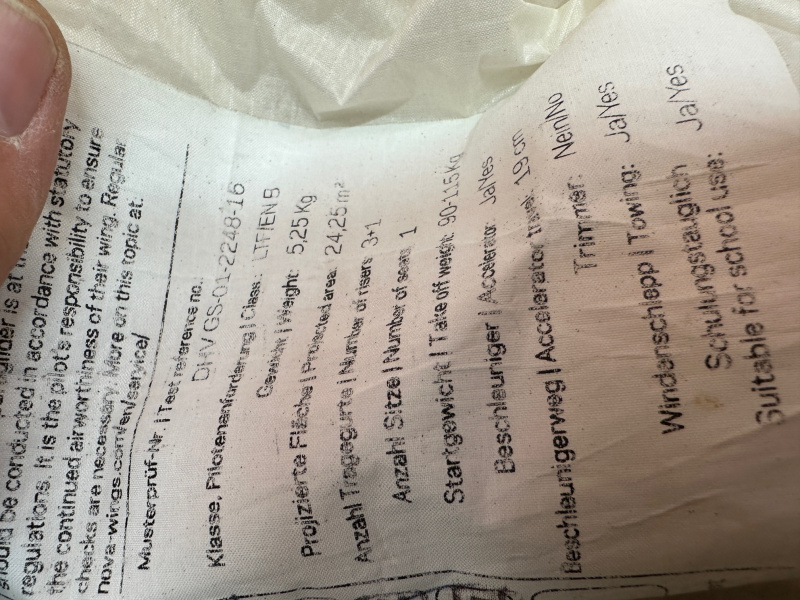 should be conducted in accordance with statutory
regulations. It is the pilot's responsibility to ensure
the continued airworthiness of their wing. Regular
checks are necessary. More on this topic at:
nova-wings.com/en/service/
Musterprüf-Nr. | Test reference no.:
DHV GS-01-2248-16
Klasse, Pilotenanforderung | Class.: LTF/EN B
Gewicht | Weight: 5,25 Kg
Projizierte Fläche | Projected area: 24,25 m²
Anzahl Tragegurte | Number of risers: 3+1
Anzahl Sitze | Number of seats: 1
Startgewicht | Take off weight: 90-115 Kg
Beschleuniger | Accelerator: Ja/Yes
Beschleunigerweg | Accelerator travel: 19 cm
Trimmer: Nein/No
Windenschlepp | Towing: Ja/Yes
Schulungstauglich
Suitable for school use: Ja/Yes